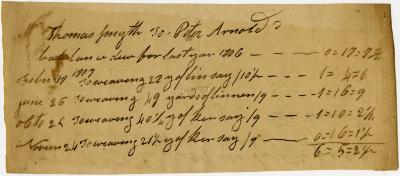 Mr Thomas Smyth To Peter Arnold Dr
ballance due for last year 1806 — — — 0=17=7½
Febr 19 1807 To weaving 28 yd linsay /10½ — — — 1=4=6
june 26 To weaving 49 yards of linnen /9 — — 1=16=9
octo 26 To weaving 40¼ yd of ker say /9 — — 1=10=2¼
Novem 24 To weaving 21½ yd of ker say /9 — 0=16=1½
6=5=2½